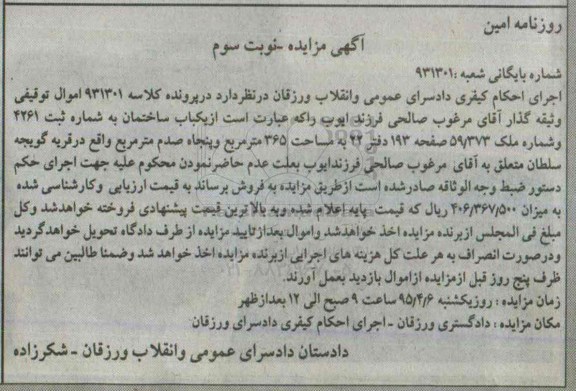 روزنامه امین
آگهی مزایده -نوبت سوم
شماره بایگانی شعبه :۹۳۱۳۰۱
اجرای احکام کیفری دادسرای عمومی وانقلاب ورزقان درنظردارد درپرونده کلاسه ۹۳۱۳۰۱ اموال توقیفی
وثیقه گذار آقای مرغوب صالحی فرزند ایوب راکه عبارت است ازیکباب ساختمان به شماره ثبت ۴۲۶۱
وشماره ملک ۵۹/۳۷۳ صفحه ۱۹۳ دفتر ۲۲ به مساحت ۳۶۵ مترمربع وپنجاه صدم مترمربع واقع درقریه گویجه
سلطان متعلق به آقای مرغوب صالحی فرزندایوب بعلت عدم حاضرنمودن محکوم علیه جهت اجرای حکم
دستور ضبط وجه الوثاقه صادرشده است ازطریق مزایده به فروش برساند به قیمت ارزیابی وکارشناسی شده
به میزان ۴۰۶/۳۶۷/۵۰۰ ریال که قیمت پایه اعلام شده وبه بالاترین قیمت پیشنهادی فروخته خواهدشد وکل
مبلغ فی المجلس ازبرنده مزایده اخذ خواهدشد واموال بعدازتایید مزایده از طرف دادگاه تحویل خواهدگردید
ودرصورت انصراف به هر علت کل هزینه های اجرایی ازبرنده مزایده اخذ خواهد شد وضمنا طالبین می توانند
ظرف پنج روز قبل ازمزایده ازاموال بازدید بعمل آورند.
زمان مزایده : روزیکشنبه ۹۵/۴/۶ ساعت ۹ صبح الی ۱۲ بعدازظهر
مکان مزایده : دادگستری ورزقان - اجرای احکام کیفری دادسرای ورزقان
دادستان دادسرای عمومی وانقلاب ورزقان - شکرزاده